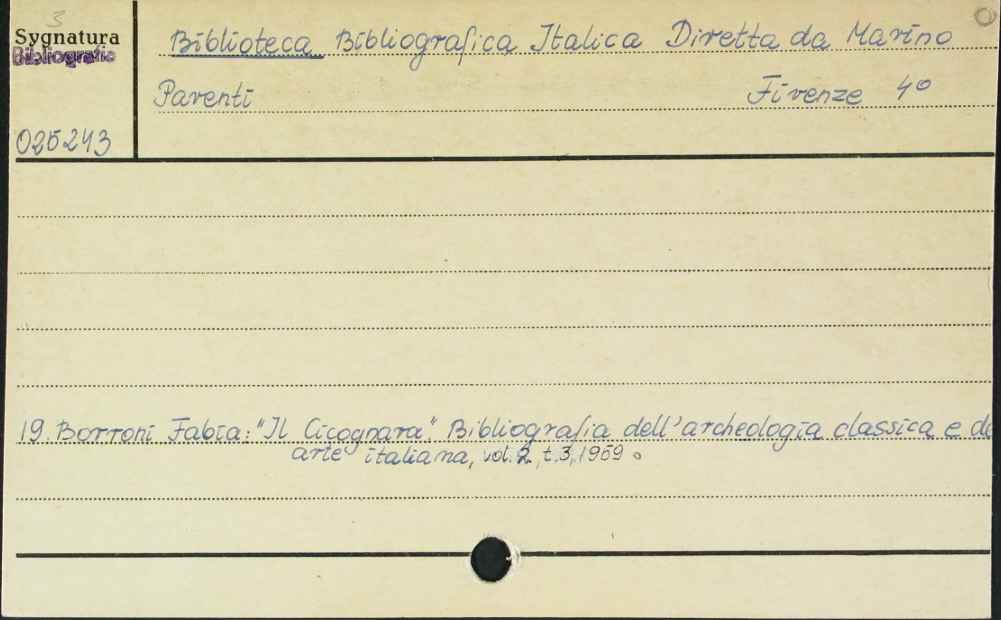 3
Sygnatura
Bibliografie
025243
Biblioteca Bibliografica Italica Diretta da Marino
Parenti Firenze 4°
19. Borroni Fabia: "Il Cicognara". Bibliografia dell'archeologia classica e de
arte italiana, vol. 2, t. 3, 1959.